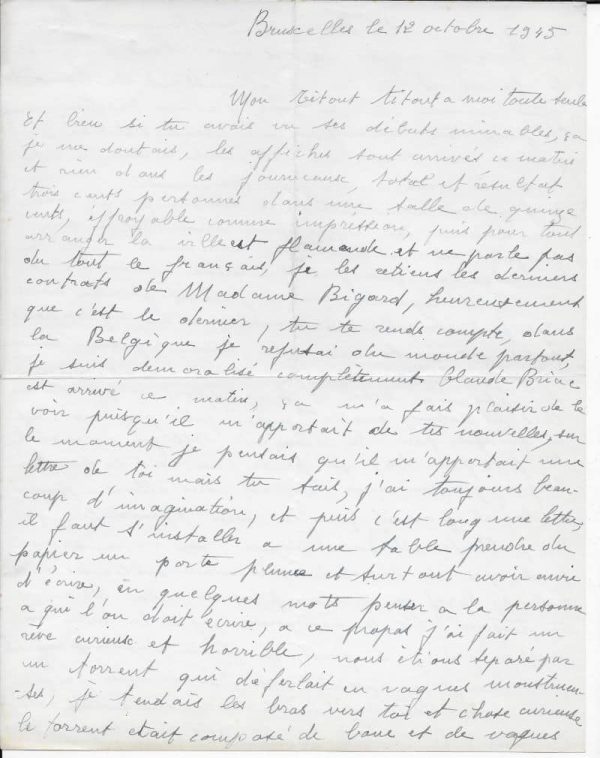 Bruxelles le 12 octobre 1945
Mon titout titout a moi toute seule
Et bien si tu avais vu ses débuts minables, ça
je me doutais, les affiches sont arrivés ce matin
et rien dans les journeaux, total et résultat
trois cents personnes dans une salle de quinze
cents, effroyable comme impréssion, puis pour tout
arranger la ville est flamande et ne parle pas
du tout le français, je les retiens les derniers
contrats de Madame Bigard, heureusement
que c'est le dernier, tu te rends compte, dans
la Belgique je refusai du monde partout,
je suis demoralisé complètement. Claude Briac
est arrivé ce matin, ça m'a fais plaisir de le
voir puisqu'il m'apportait de tes nouvelles, sur
le moment je pensais qu'il m'apportait une
lettre de toi mais tu sais, j'ai toujours beau-
coup d'imagination, et puis c'est long une lettre,
il faut s'installer a une table prendre du
papier un porte plume et surtout avoir envie
d'écrire, en quelques mots penser a la personne
a qui l'on doit écrire, a ce propos j'ai fait un
rêve curieux et horrible, nous étions separé par
un torrent qui déferlait en vagues monstrueu-
-ses, je tendais les bras vers toi et chose curieuse
le torrent était composé de boue et de vagues